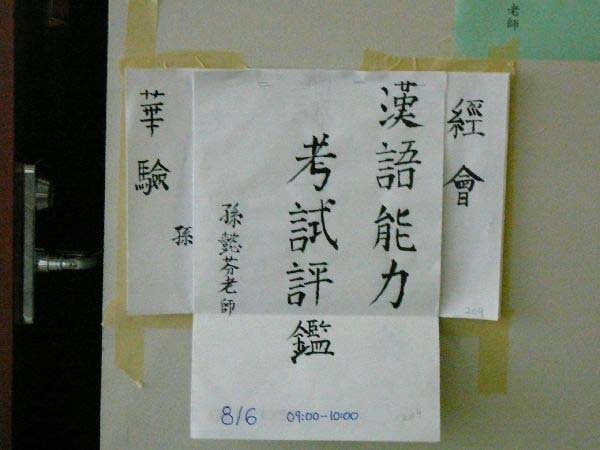 漢語能力
考試評鑑
孫懿芬老師
8/6 09:00-10:00
209
經會
209
華驗
孫
老師